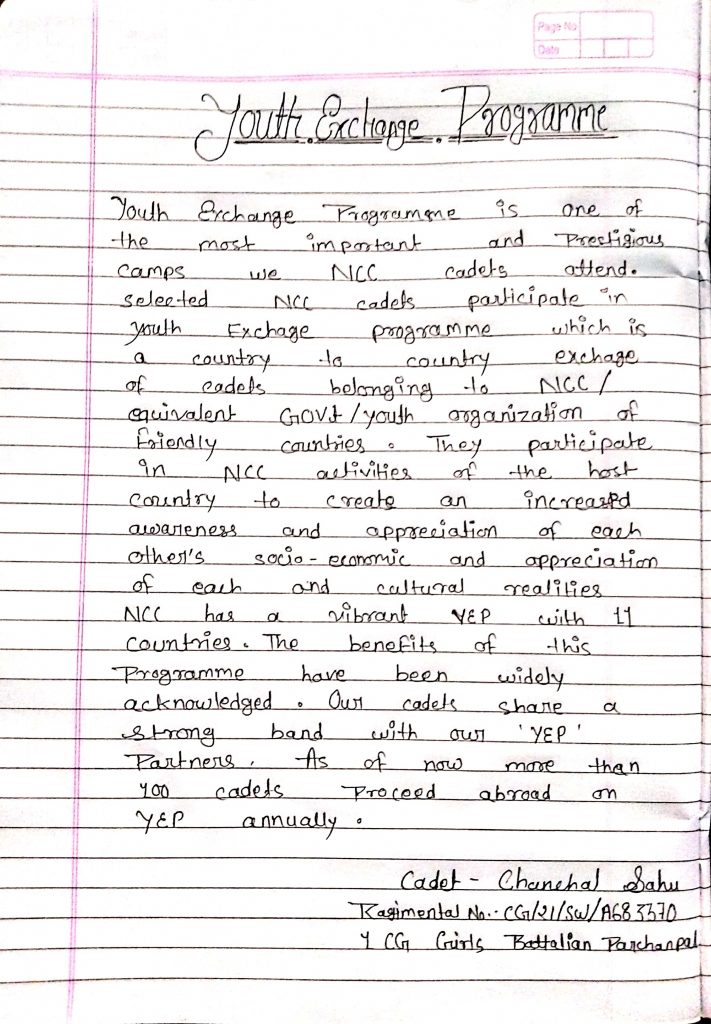 Page No
Date
Youth Exchange Programme
Youth Exchange Programme is one of
the most important and Prestigious
camps we NCC cadets attend.
selected NCC cadets participate in
youth Exchage programme which is
a country to country exchage
of cadets belonging to NCC/
equivalent GOVt/youth organization of
friendly countries. They participate
in NCC activities of the host
country to create an increased
awareness and appreciation of each
other's socio-economic and appreciation
of each and cultural realities
NCC has a vibrant YEP with 11
countries. The benefits of this
Programme have been widely
acknowledged. Our cadets share a
strong band with our 'YEP'
Partners. As of now more than
100 cadets Proceed abroad on
YEP annually.
Cadet - Chanchal Sahu
Ragimental No.- CG/21/SW/A683370
1 CG Girls Battalian Parchanpal